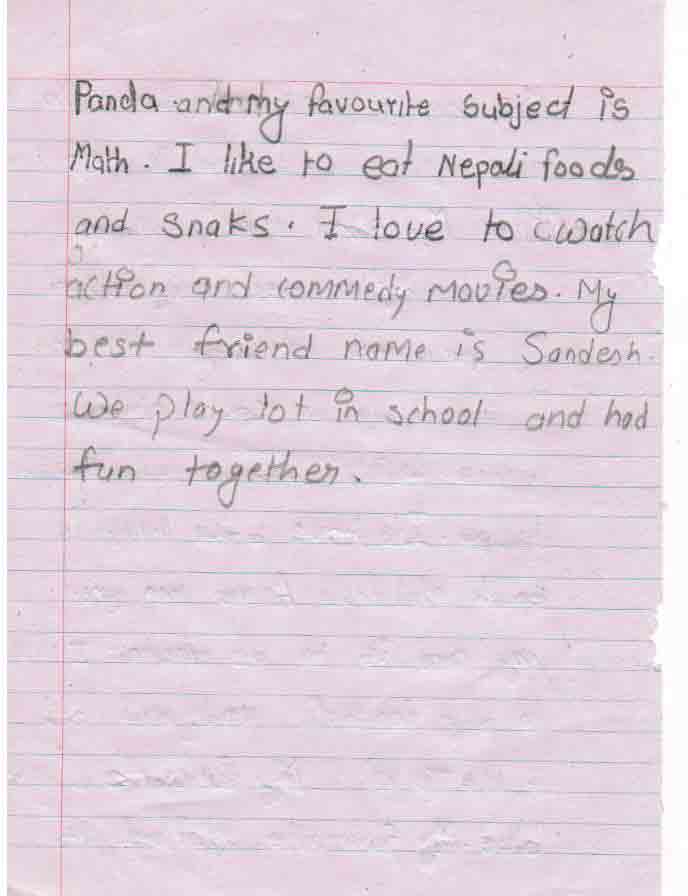 Panda and my favourite subject is
Math. I like to eat Nepali foods
and snaks. I love to watch
action and commedy movies. My
best friend name is Sandesh.
We play lot in school and had
fun together.